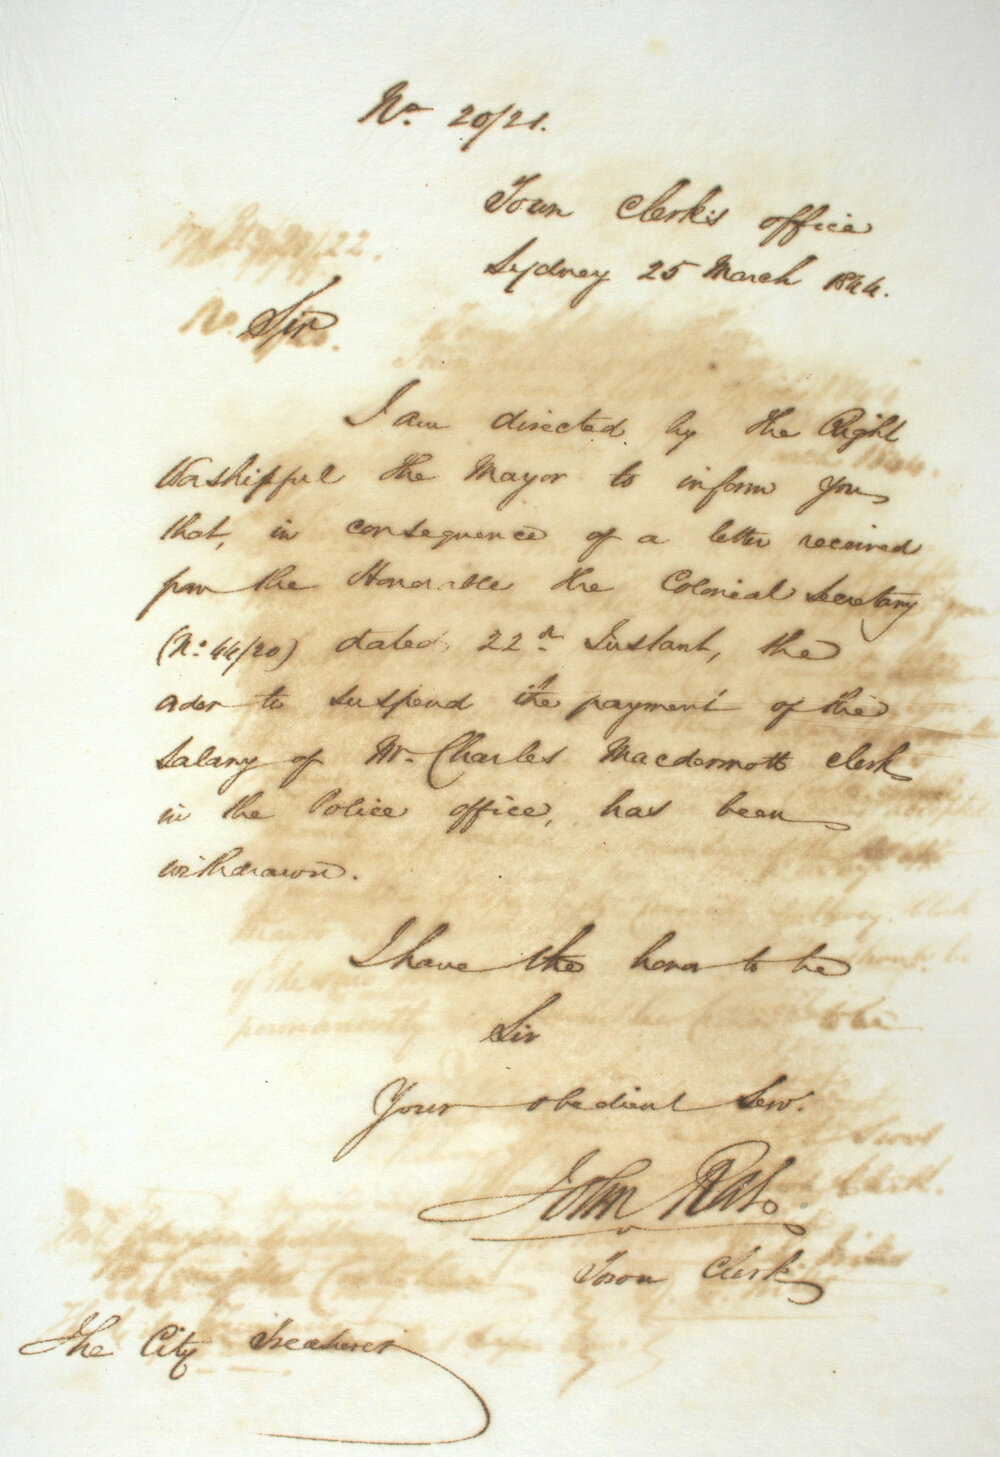 No. 20/21.
Town Clerk's office
Sydney 25 March 1844.
Sir
I am directed by the Right
Worshipful the Mayor to inform you
that, in consequence of a letter received
from the Honorable the Colonial Secretary
(No. 44/20) dated 22nd Instant, the
order to suspend the payment of the
Salary of Mr. Charles Macdermott clerk
in the Police office, has been
withdrawn.
I have the honor to be
Sir
Your obedient Serv.
John
Town Clerk
The City Treasurer